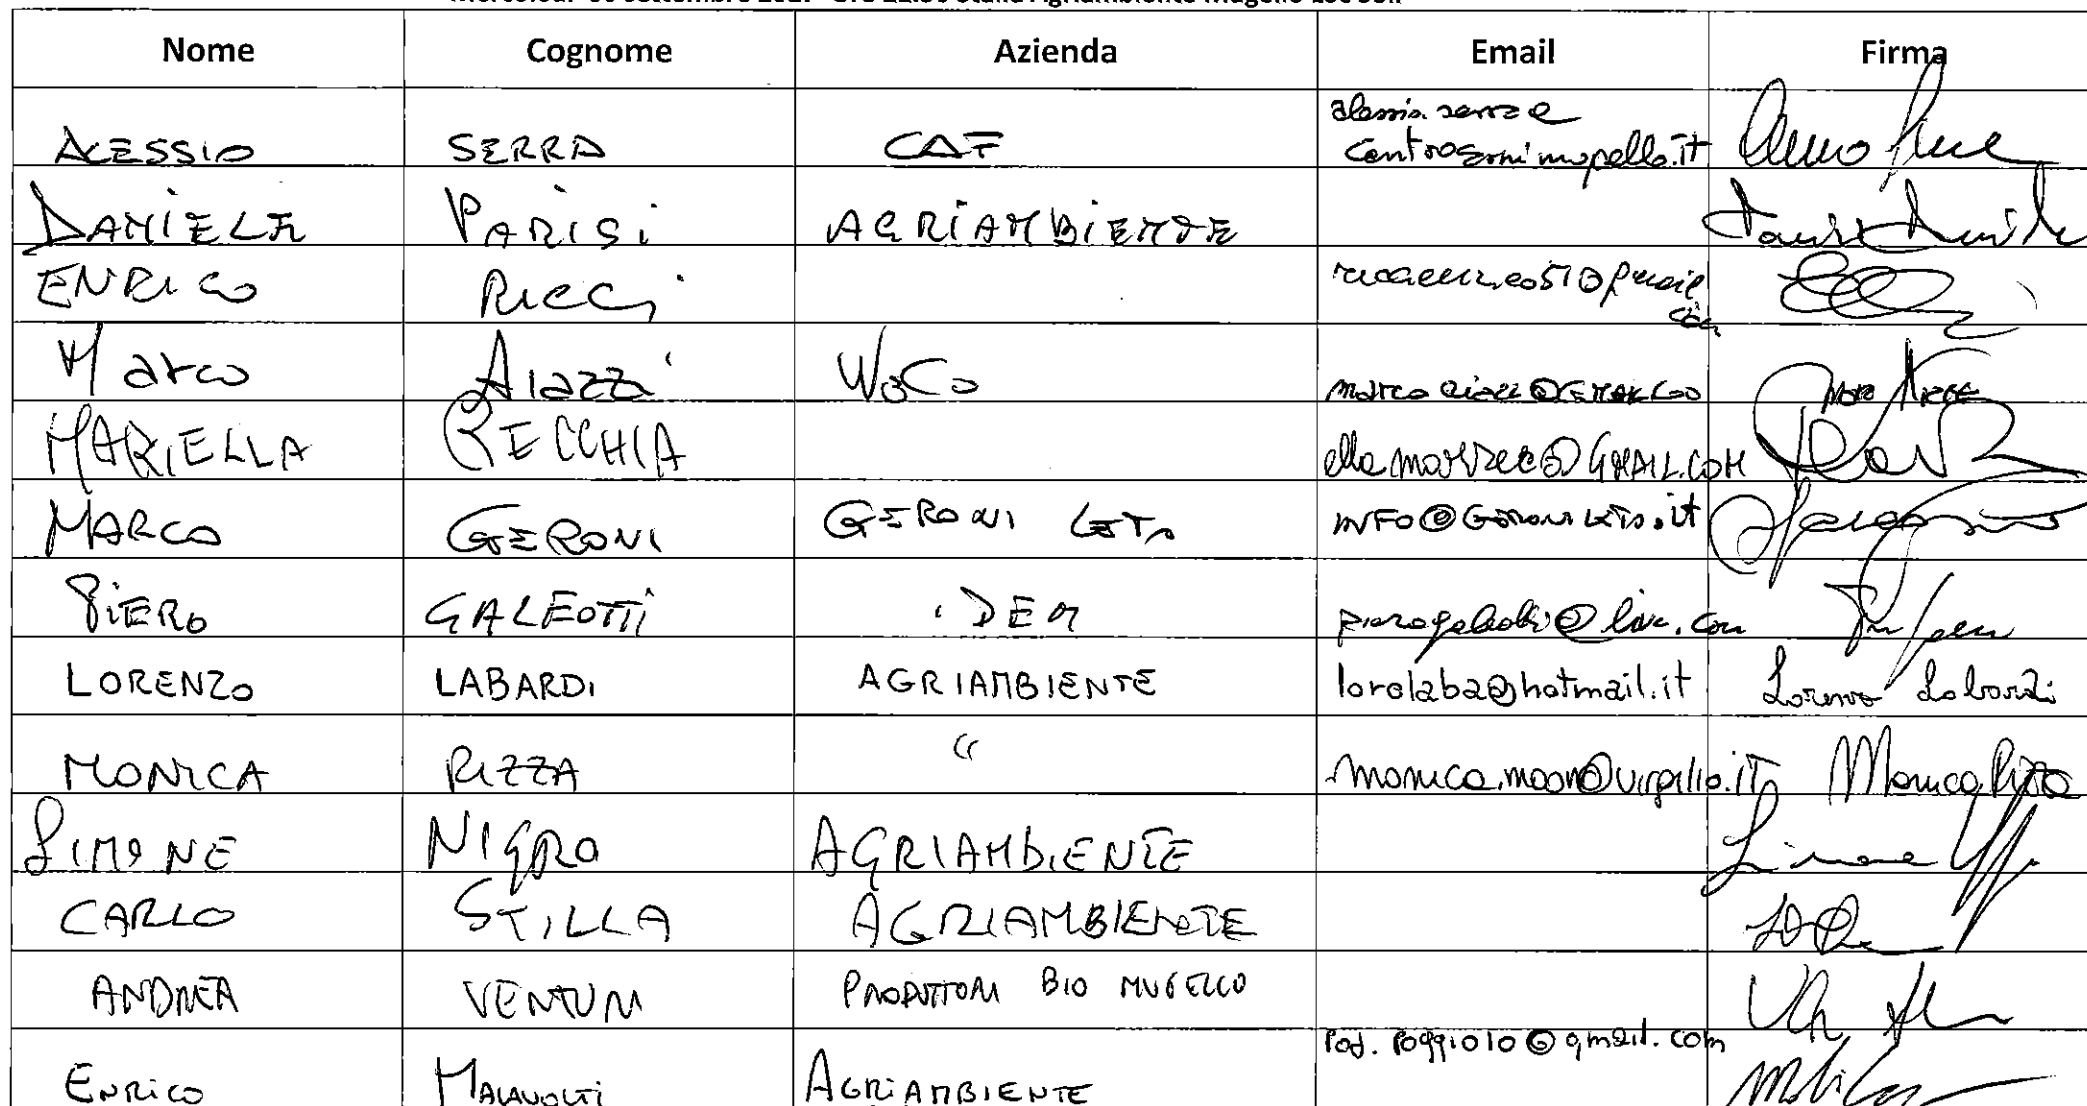 Nome Cognome Azienda Email Firma
ALESSIO SERRA CAF
DANIELE PARISI AGRIAMBIENTE
ENRICO RICCI
Marco Aiazzi WoCo
MARIELLA RECCHIA GMAIL.COM
MARCO GERONI GERONI LETO INFO@GERONILETO.it
PIERO GALEOTTI IDEM pierogaleotti@live.com
LORENZO LABARDI AGRIAMBIENTE lorolaba@hotmail.it Lorenzo Labardi
MONICA RIZZA " monica.moon@virgilio.it Monica Rizza
SIMONE NIGRO AGRIAMBIENTE Simone
CARLO STILLA AGRIAMBIENTE
ANDREA VENTURI PRODUTTORI BIO MUGELLO
ENRICO MALAVOLTI AGRIAMBIENTE Pod.Poggiolo@gmail.com